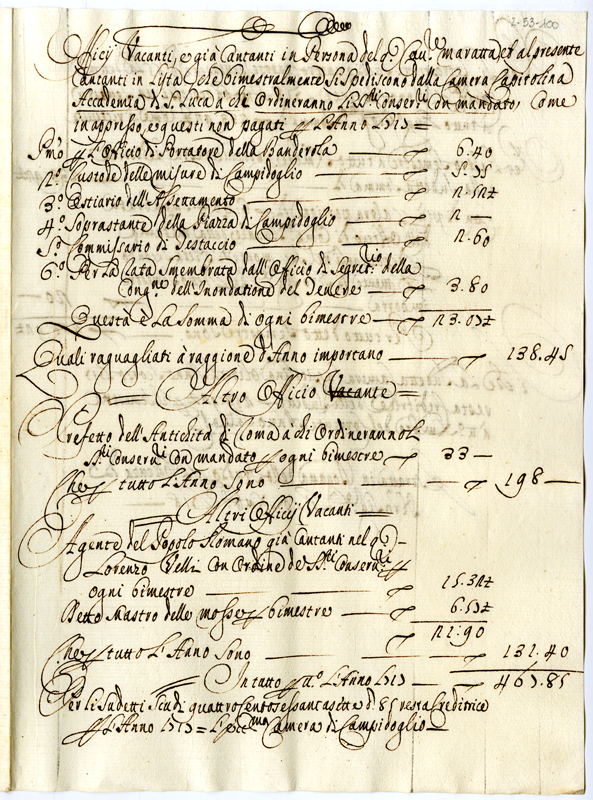 2-53-100
Officij Vacanti, e già Cantanti in Persona del q. Cau.re Maratta, et al presente
Cantanti in lista, che bimestralmente si spediscono dalla Camera Capitolina
Accademia di S. Luca à che Ordineranno li SS.ri Conseru.ri Con mandato, Come
in appresso, e questi non pagati p l'Anno 1713 =
P.mo p l'Officio di Portatore della Banderola — 6.40
2.o Custode delle misure di Campidoglio — 5.15
3.o Ostiario dell'Assettamento
4.o Soprastante della Piazza di Campidoglio — 2 —
5.o Commissario di Testaccio — 2.60
6.o Per la rata smembrata dall'Officio di Segret.rio della
Cong.ne dell'Inondatione del Tevere — 3.80
Questa è la somma di ogni bimestre —
Quali raguagliati à raggione d'Anno importano — 138.45
= Altro Officio Vacante =
Prefetto dell'Antichità di Roma à chi Ordineranno li
SS.ri Conseru.ri Con mandato p ogni bimestre — 33 —
Che p tutto l'Anno sono — 198 —
Altri Officij Vacanti =
Agente del Popolo Romano già Cantanti nel q.
Lorenzo Belli Con Ordine de SS.ri Conseru.ri p
ogni bimestre —
Netto Mastro delle mosse p bimestre —
21:90
Che p tutto l'Anno sono — 131.40
In tutto p d.o l'Anno 1713 — 467.85
Per li sudetti scudi quattrocentosessantasette d. 85 resta Creditrice
p l'Anno 1713 = l'Ecc.ma Camera di Campidoglio —